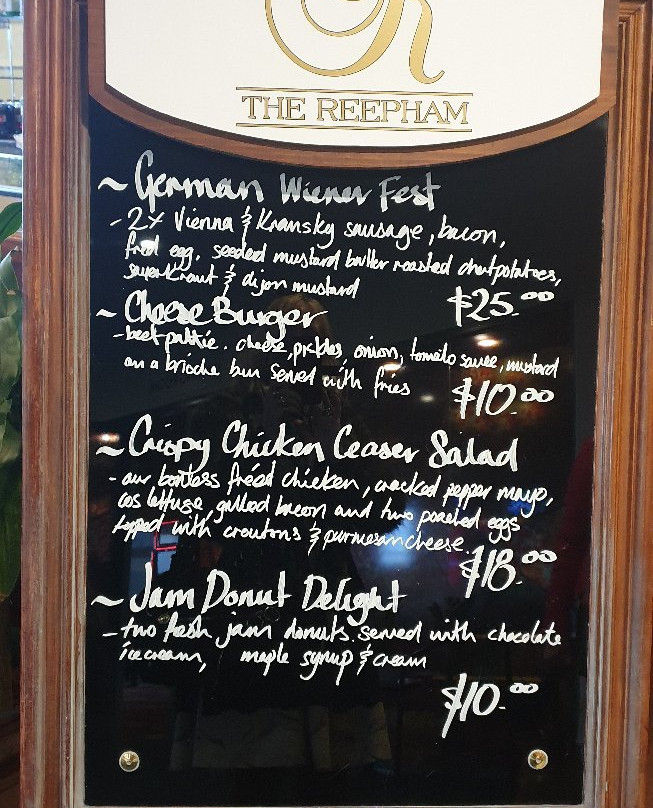 R
THE REEPHAM
~ German Wiener Fest
- 2x Vienna & Kransky sausage, bacon,
fried egg, seeded mustard butter roasted chat potatoes,
sauerkraut & dijon mustard
$25.00
~ Cheese Burger
- beef pattie. cheese, pickles, onion, tomato sauce, mustard
on a brioche bun served with fries
$10.00
~ Crispy Chicken Ceaser Salad
- our bonless fried chicken, cracked pepper mayo,
cos lettuse, grilled bacon and two poached eggs
topped with croutons & parmesan cheese.
$18.00
~ Jam Donut Delight
- two fresh jam donuts. served with chocolate
icecream, maple syrup & cream
$10.00